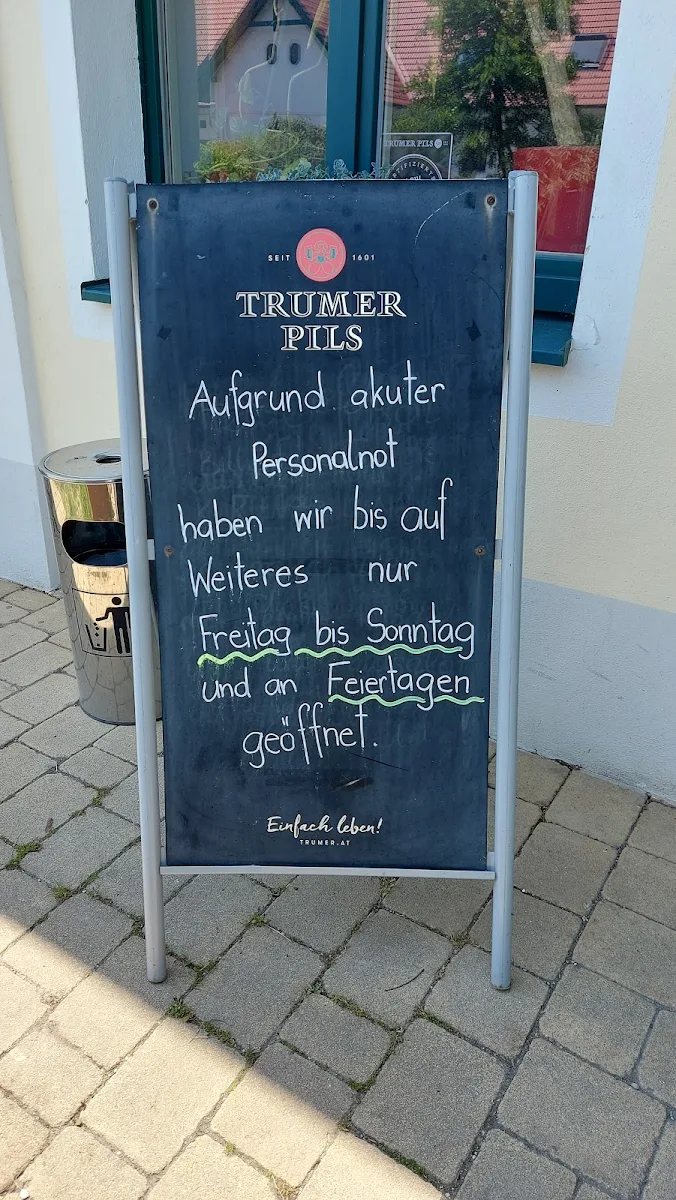 TRUMER PILS
SEIT 1601
TRUMER
PILS
Aufgrund akuter
Personalnot
haben wir bis auf
Weiteres nur
Freitag bis Sonntag
und an Feiertagen
geöffnet.
Einfach leben!
TRUMER.AT